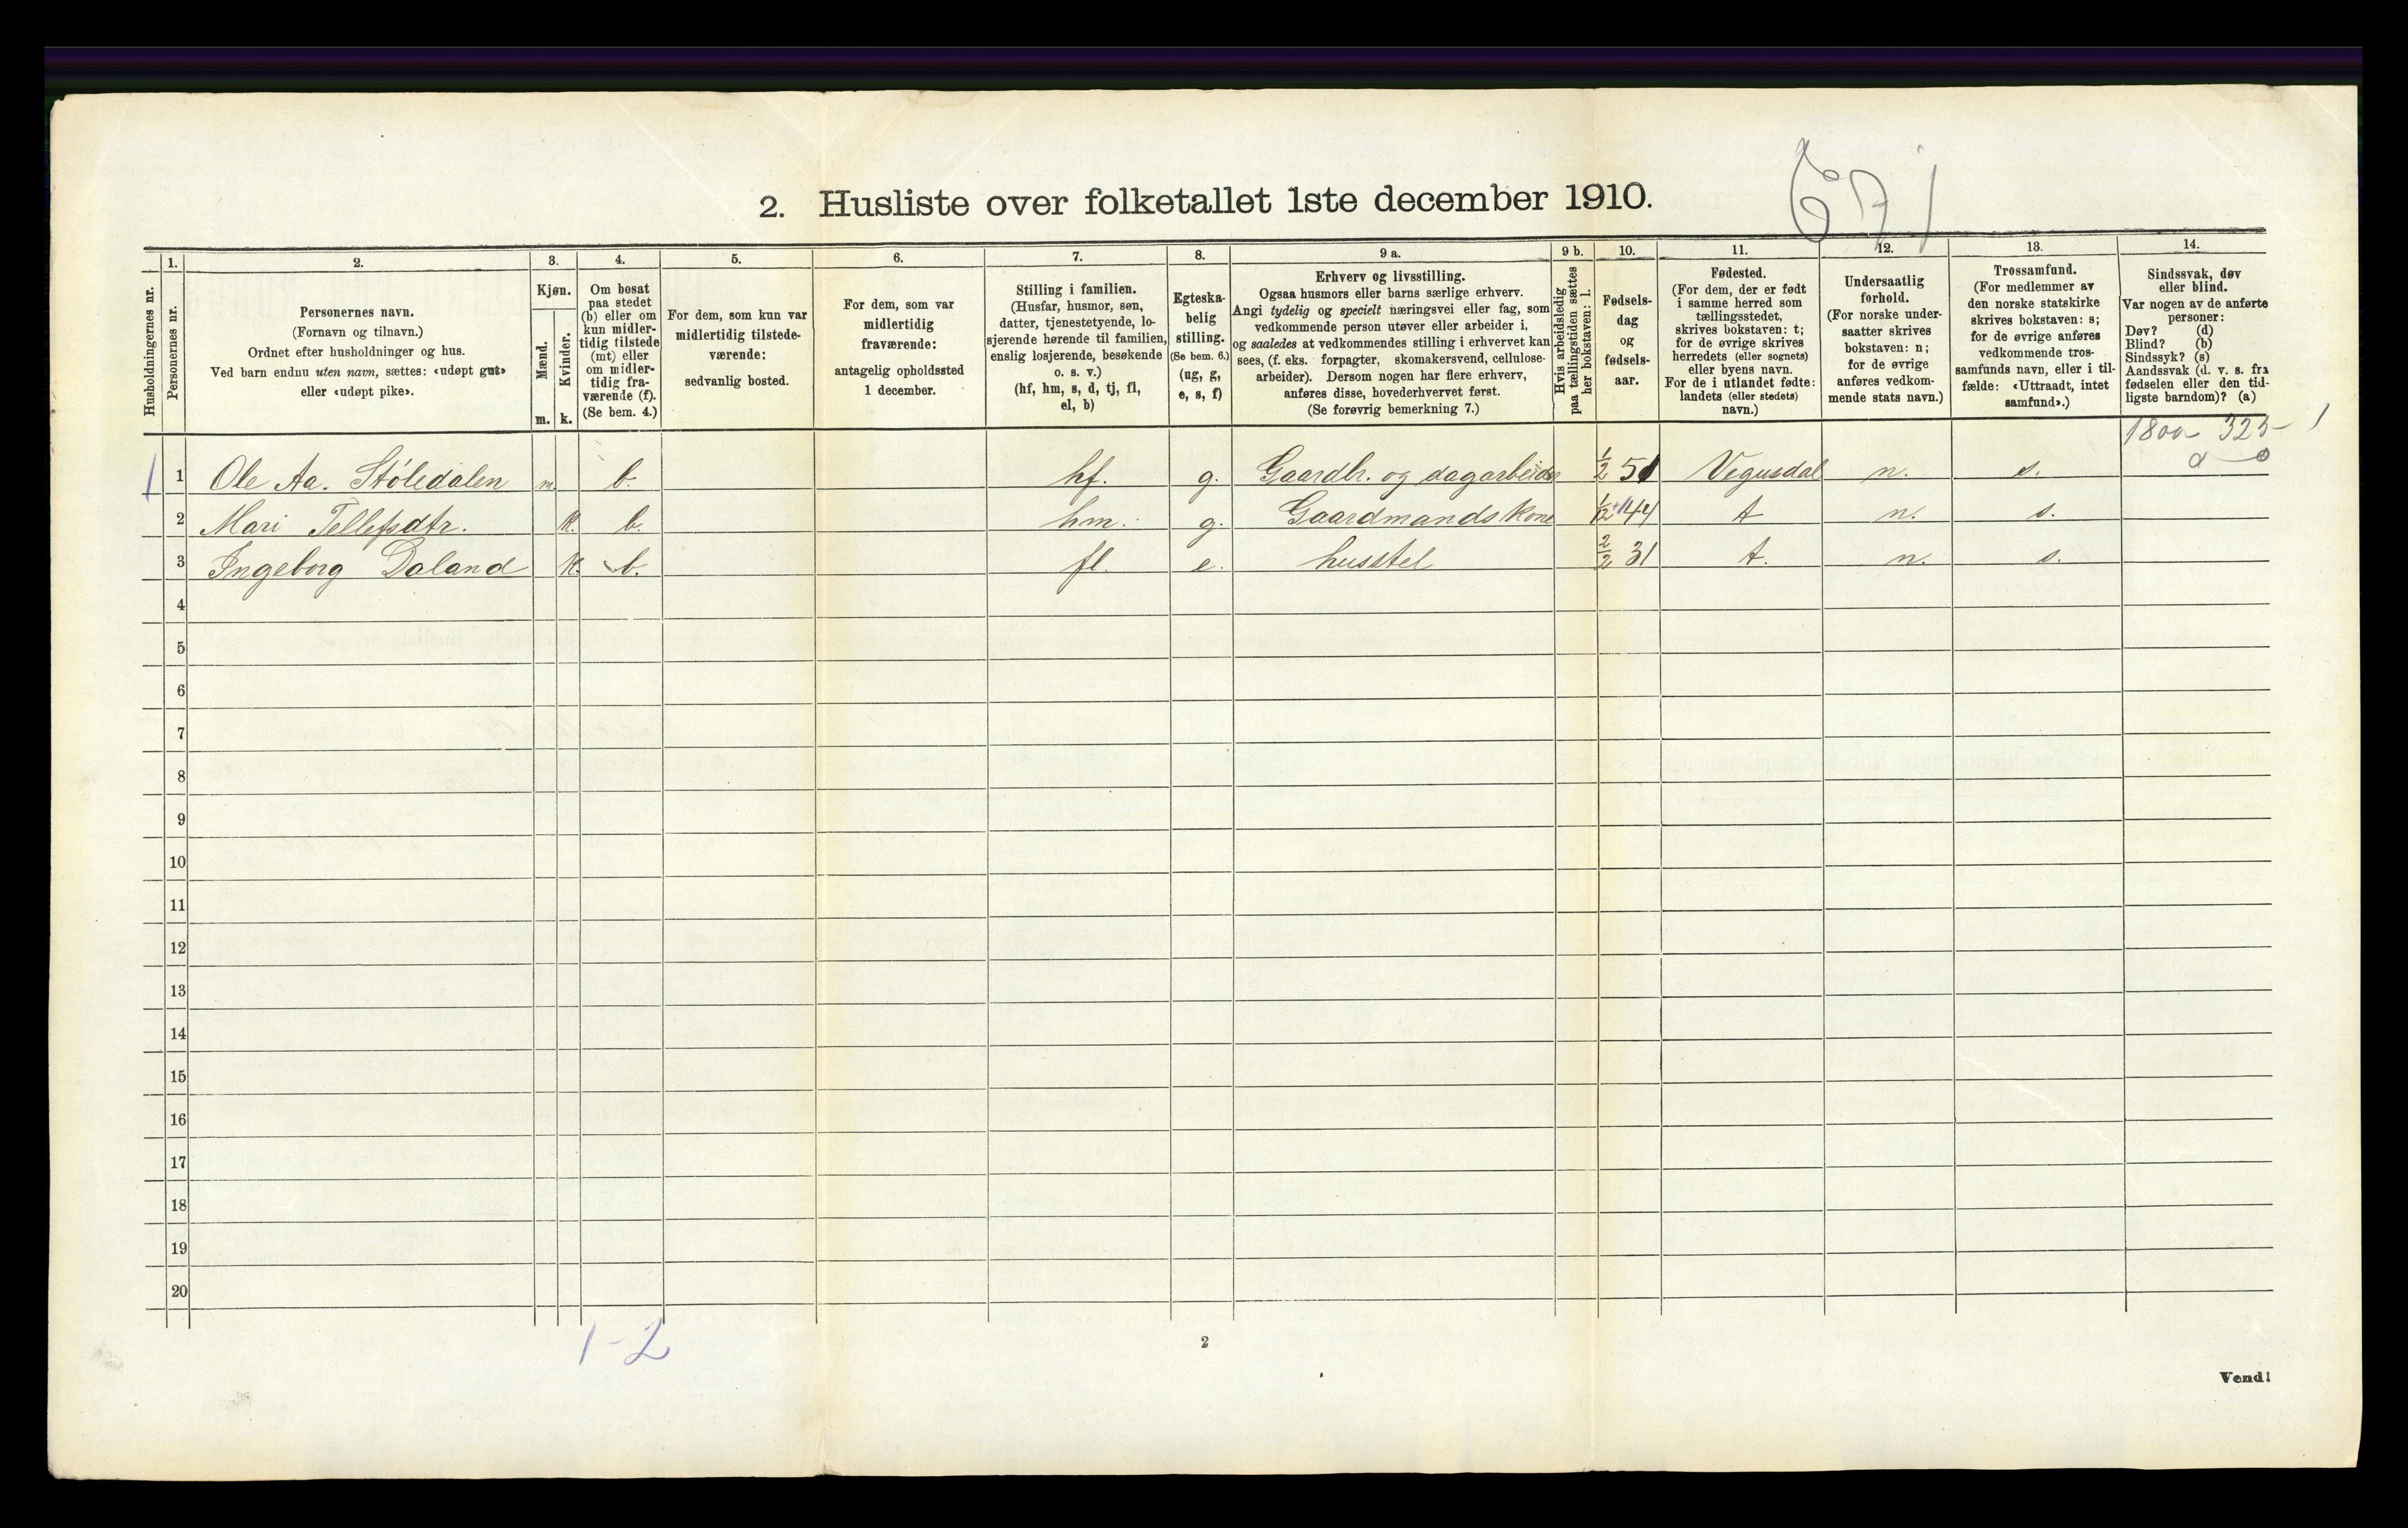 2. Husliste over folketallet 1ste december 1910.
Husholdningernes nr.
1. Personernes nr.
2. Personernes navn.
(Fornavn og tilnavn.)
Ordnet efter husholdninger og hus.
Ved barn endnu uten navn, sættes: «udøpt gut»
eller «udøpt pike».
3. Kjøn.
Mænd. m.
Kvinder. k.
4. Om bosat
paa stedet
(b) eller om
kun midler-
tidig tilstede
(mt) eller
om midler-
tidig fra-
værende (f).
(Se bem. 4.)
5. For dem, som kun var
midlertidig tilstede-
værende:
sedvanlig bosted.
6. For dem, som var
midlertidig
fraværende:
antagelig opholdssted
1 december.
7. Stilling i familien.
(Husfar, husmor, søn,
datter, tjenestetyende, lo-
sjerende hørende til familien,
enslig losjerende, besøkende
o. s. v.)
(hf, hm, s, d, tj, fl,
el, b)
8. Egteska-
belig
stilling.
(Se bem. 6.)
(ug, g,
e, s, f)
9 a. Erhverv og livsstilling.
Ogsaa husmors eller barns særlige erhverv.
Angi tydelig og specielt næringsvei eller fag, som
vedkommende person utøver eller arbeider i,
og saaledes at vedkommendes stilling i erhvervet kan
sees, (f. eks. forpagter, skomakersvend, cellulose-
arbeider). Dersom nogen har flere erhverv,
anføres disse, hovederhvervet først.
(Se forøvrig bemerkning 7.)
9 b. Hvis arbeidsledig
paa tællingstiden sættes
her bokstaven: l.
10. Fødsels-
dag
og
fødsels-
aar.
11. Fødested.
(For dem, der er født
i samme herred som
tællingsstedet,
skrives bokstaven: t;
for de øvrige skrives
herredets (eller sognets)
eller byens navn.
For de i utlandet fødte:
landets (eller stedets)
navn.)
12. Undersaatlig
forhold.
(For norske under-
saatter skrives
bokstaven: n;
for de øvrige
anføres vedkom-
mende stats navn.)
13. Trossamfund.
(For medlemmer av
den norske statskirke
skrives bokstaven: s;
for de øvrige anføres
vedkommende tros-
samfunds navn, eller i til-
fælde: «Uttraadt, intet
samfund».)
14. Sindssvak, døv
eller blind.
Var nogen av de anførte
personer:
Døv? (d)
Blind? (b)
Sindssyk? (s)
Aandssvak (d. v. s. fra
fødselen eller den tid-
ligste barndom)? (a)
1 1 Ole Aa. Stóledalen m. b. hf. g. Gaardbr. og dagarbeider 1/2 51 Vegusdal n. s.
2 Mari Tellefsdtr. k. b. hm. g. Gaardmandskone 1/12 44 t n. s.
3 Ingeborg Daland k. b. fl. e. husstel 2/2 31 t. n. s.
4
5
6
7
8
9
10
11
12
13
14
15
16
17
18
19
20
1-2
2
Vend!